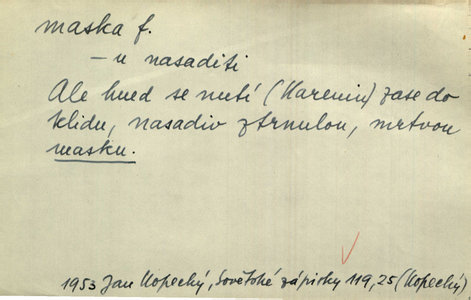 maska f.
– u nasaditi
Ale hned se nutí (Karenin) zase do
klidu, nasadiv ztrnulou, mrtvou
masku.
1953 Jan Kopecký, Sovětské zápisky 119,25 (Kopecký)